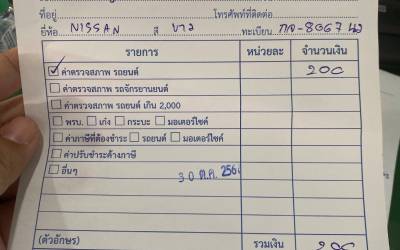 ที่อยู่ โทรศัพท์ที่ติดต่อ
ยี่ห้อ NISSAN สี ขาว ทะเบียน
รายการ หน่วยละ จำนวนเงิน
ค่าตรวจสภาพ รถยนต์ 200
ค่าตรวจสภาพ รถจักรยานยนต์
ค่าตรวจสภาพ รถยนต์ เกิน 2,000
พรบ. เก๋ง กระบะ มอเตอร์ไซค์
ค่าภาษีที่ต้องชำระ รถยนต์ มอเตอร์ไซค์
ค่าปรับชำระล้างภาษี
อื่นๆ
30 ต.ค.
(ตัวอักษร) รวมเงิน 200